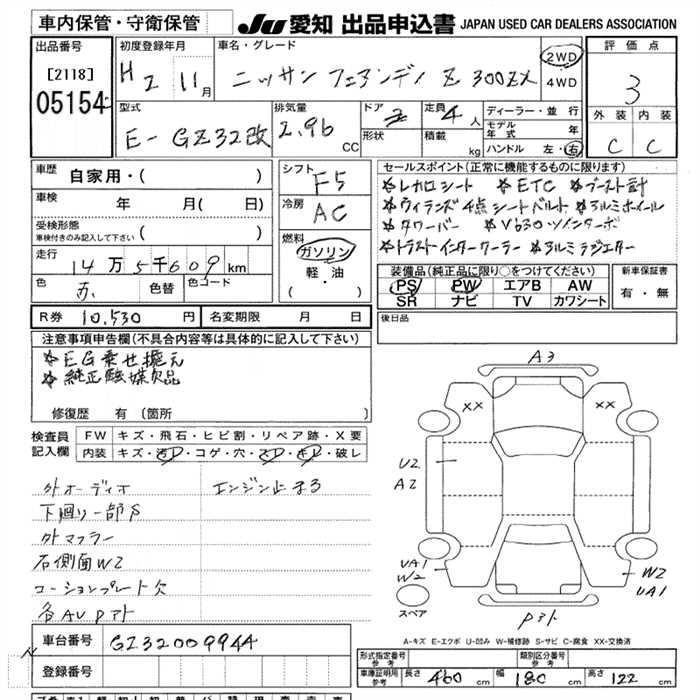 車内保管・守衛保管
JU 愛知 出品申込書 JAPAN USED CAR DEALERS ASSOCIATION
出品番号 初度登録年月 車名・グレード 評価点
[2118] H 2 11月 ニッサン フェアレディ Z 300ZX 2WD 4WD 3
05154 型式 排気量 ドア 2 定員 4 人 ディーラー・並行 外装 内装
E- GZ32改 2.96 CC 形状 積載 kg モデル年式 年 C C
ハンドル 左・右
車歴 自家用・( ) シフト F5 セールスポイント(正常に機能するものに限ります)
車検 年 月( 日) 冷房 AC ※レカロシート ※ETC ※ブースト計
受検形態 車検付きのみ記入して下さい ( ) ※ウィランズ4点シートベルト ※アルミホイール
走行 14万5千609km 燃料 ガソリン ※タワーバー ※VG30ツインターボ
色 赤 色替 色コード 軽・油 ※トラストインタークーラー ※アルミラジエター
( ・ ) 装備品(純正品に限り○をつけてください) 新車保証書
PS PW エアB AW 有・無
SR ナビ TV カワシート
R券 10,530 円 名変期限 月 日 後日品
注意事項申告欄(不具合内容等は具体的に記入して下さい)
※EG乗せ換え
※純正触媒欠品
修復歴 有 [箇所 ]
検査員記入欄 FW キズ・飛石・ヒビ割・リペア跡・X要
内装 キズ・汚レ・コゲ・穴・スレ・キレ・破レ
外オーディオ エンジン止まる
下廻り一部S
外マフラー
右側面W2
コーションプレート欠
各AUPアト
A3
XX XX
U2
A2
UA1
W2
W2
UA1
Pアト
スペア
A-キズ E-エクボ U-凹み W-補修跡 S-サビ C-腐食 XX-交換済
車台番号 GZ32009944
登録番号
形式指定番号 参考 類別区分番号 参考
車庫証明用 参考 長さ 460 cm 幅 180 cm 高さ 122 cm